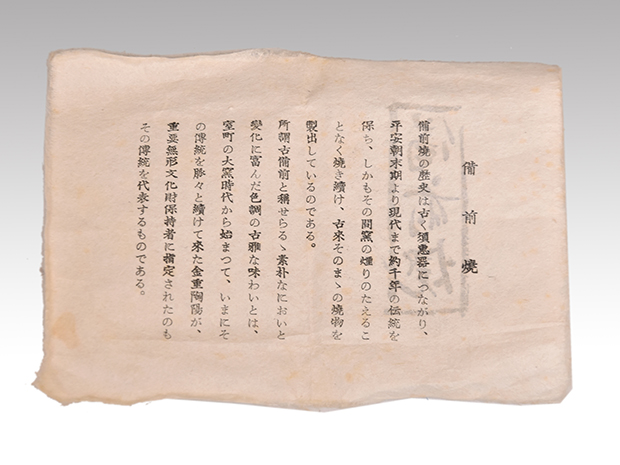 備前燒
備前燒の歴史は古く須惠器につながり、
平安朝末期より現代まで約千年の伝統を
保ち、しかもその間窯の煙りのたえるこ
となく燒き續け、古來そのまゝの燒物を
製出しているのである。
所謂古備前と稱せらるゝ素朴なにおいと
變化に富んだ色調の古雅な味わいとは、
室町の大窯時代から始まつて、いまにそ
の傳統を脉々と續けて来た金重陶陽が、
重要無形文化財保持者に指定されたのも
その傳統を代表するものである。